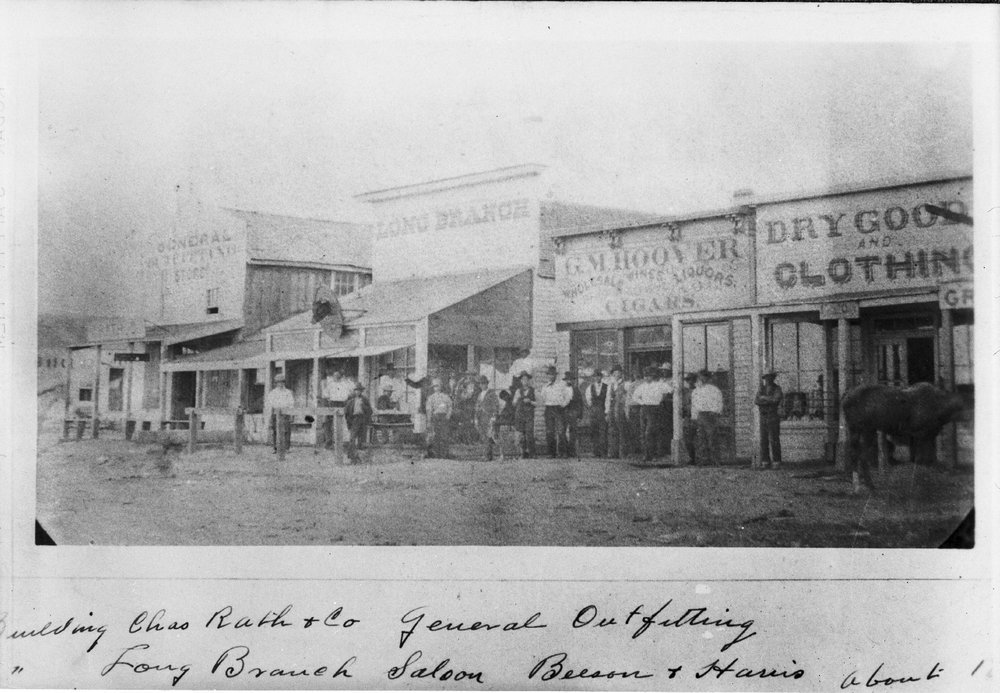 GENERAL
OUTFITTING
STORE
LONG BRANCH
G.M. HOOVER
WHOLESALE WINES LIQUORS
CIGARS
DRY GOOD
AND
CLOTHING
GR
Building Chas Rath & Co General Outfitting
" Long Branch Saloon Beeson & Harris about 1